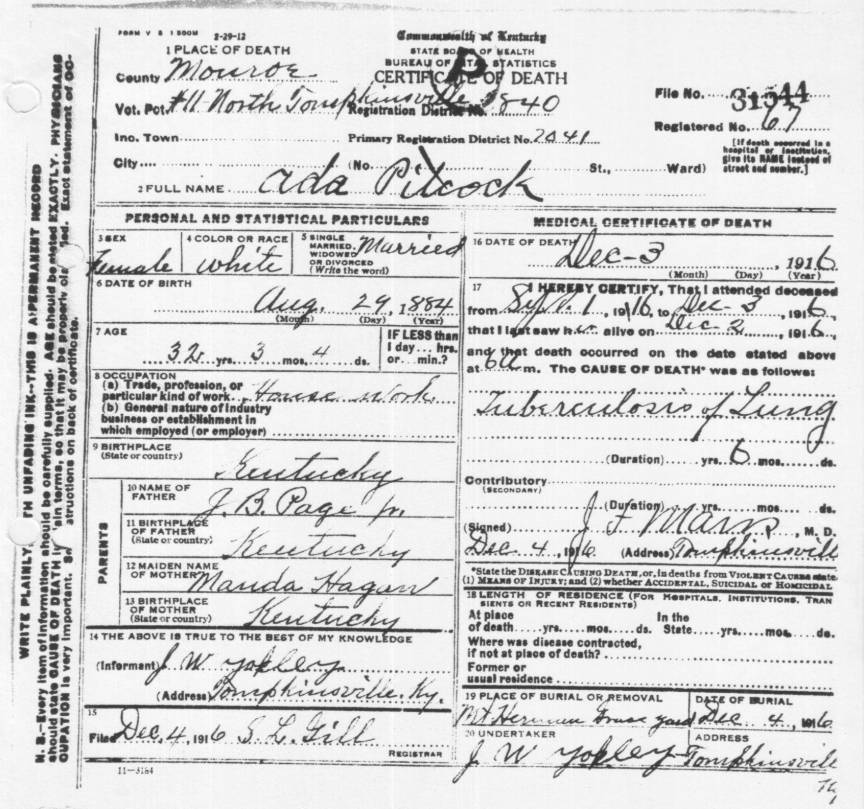 FORM V S 1 500M 2-29-12
Commonwealth of Kentucky
STATE BOARD OF HEALTH
BUREAU OF VITAL STATISTICS
CERTIFICATE OF DEATH
1 PLACE OF DEATH
County Monroe
Vot. Pct. #11 North Tompkinsville Registration District No. 840
File No. 31544
Inc. Town Primary Registration District No. 2041
Registered No. 67
City (No. St., Ward)
[If death occurred in a hospital or institution, give its NAME instead of street and number.]
2 FULL NAME Ada Pitcock
PERSONAL AND STATISTICAL PARTICULARS
3 SEX Female
4 COLOR OR RACE White
5 SINGLE MARRIED, WIDOWED OR DIVORCED (Write the word) Married
6 DATE OF BIRTH
Aug. 29, 1884
(Month) (Day) (Year)
7 AGE
32 yrs. 3 mos. 4 ds.
IF LESS than 1 day... hrs. or... min.?
8 OCCUPATION
(a) Trade, profession, or particular kind of work House work
(b) General nature of industry business or establishment in which employed (or employer)
9 BIRTHPLACE
(State or country) Kentucky
PARENTS
10 NAME OF FATHER J. B. Page Jr.
11 BIRTHPLACE OF FATHER (State or country) Kentucky
12 MAIDEN NAME OF MOTHER Manda Hagan
13 BIRTHPLACE OF MOTHER (State or country) Kentucky
14 THE ABOVE IS TRUE TO THE BEST OF MY KNOWLEDGE
(Informant) J W Yokley
(Address) Tompkinsville, Ky.
15
Filed Dec. 4, 1916 S. L. Gill
REGISTRAR
11-3184
MEDICAL CERTIFICATE OF DEATH
16 DATE OF DEATH Dec-3, 1916
(Month) (Day) (Year)
17 I HEREBY CERTIFY, That I attended deceased
from Sept. 1 1916, to Dec-3, 1916,
that I last saw her alive on Dec 2, 1916,
and that death occurred on the date stated above
at 6 a m. The CAUSE OF DEATH* was as follows:
Tuberculosis of Lung
(Duration) yrs. 6 mos. ds.
Contributory
(SECONDARY)
(Duration) yrs. mos. ds.
(Signed) J F Marrs, M. D.
Dec. 4, 1916 (Address) Tompkinsvill
*State the DISEASE CAUSING DEATH, or, in deaths from VIOLENT CAUSES state (1) MEANS OF INJURY; and (2) whether ACCIDENTAL, SUICIDAL or HOMICIDAL
18 LENGTH OF RESIDENCE (FOR HOSPITALS, INSTITUTIONS, TRANSIENTS OR RECENT RESIDENTS)
At place of death yrs. mos. ds. In the State yrs. mos. ds.
Where was disease contracted, if not at place of death?
Former or usual residence
19 PLACE OF BURIAL OR REMOVAL Mt Herman Grave yard
DATE OF BURIAL Dec 4, 1916
20 UNDERTAKER J W Yokley
ADDRESS Tompkinsvill
WRITE PLAINLY, UNFADING INK--THIS IS A PERMANENT RECORD
N. B.--Every item of information should be carefully supplied. AGE should be stated EXACTLY. PHYSICIANS
should state CAUSE OF DEATH in terms, so that it may be properly Exact statement of OC-
CUPATION is very important. on back of certificate.